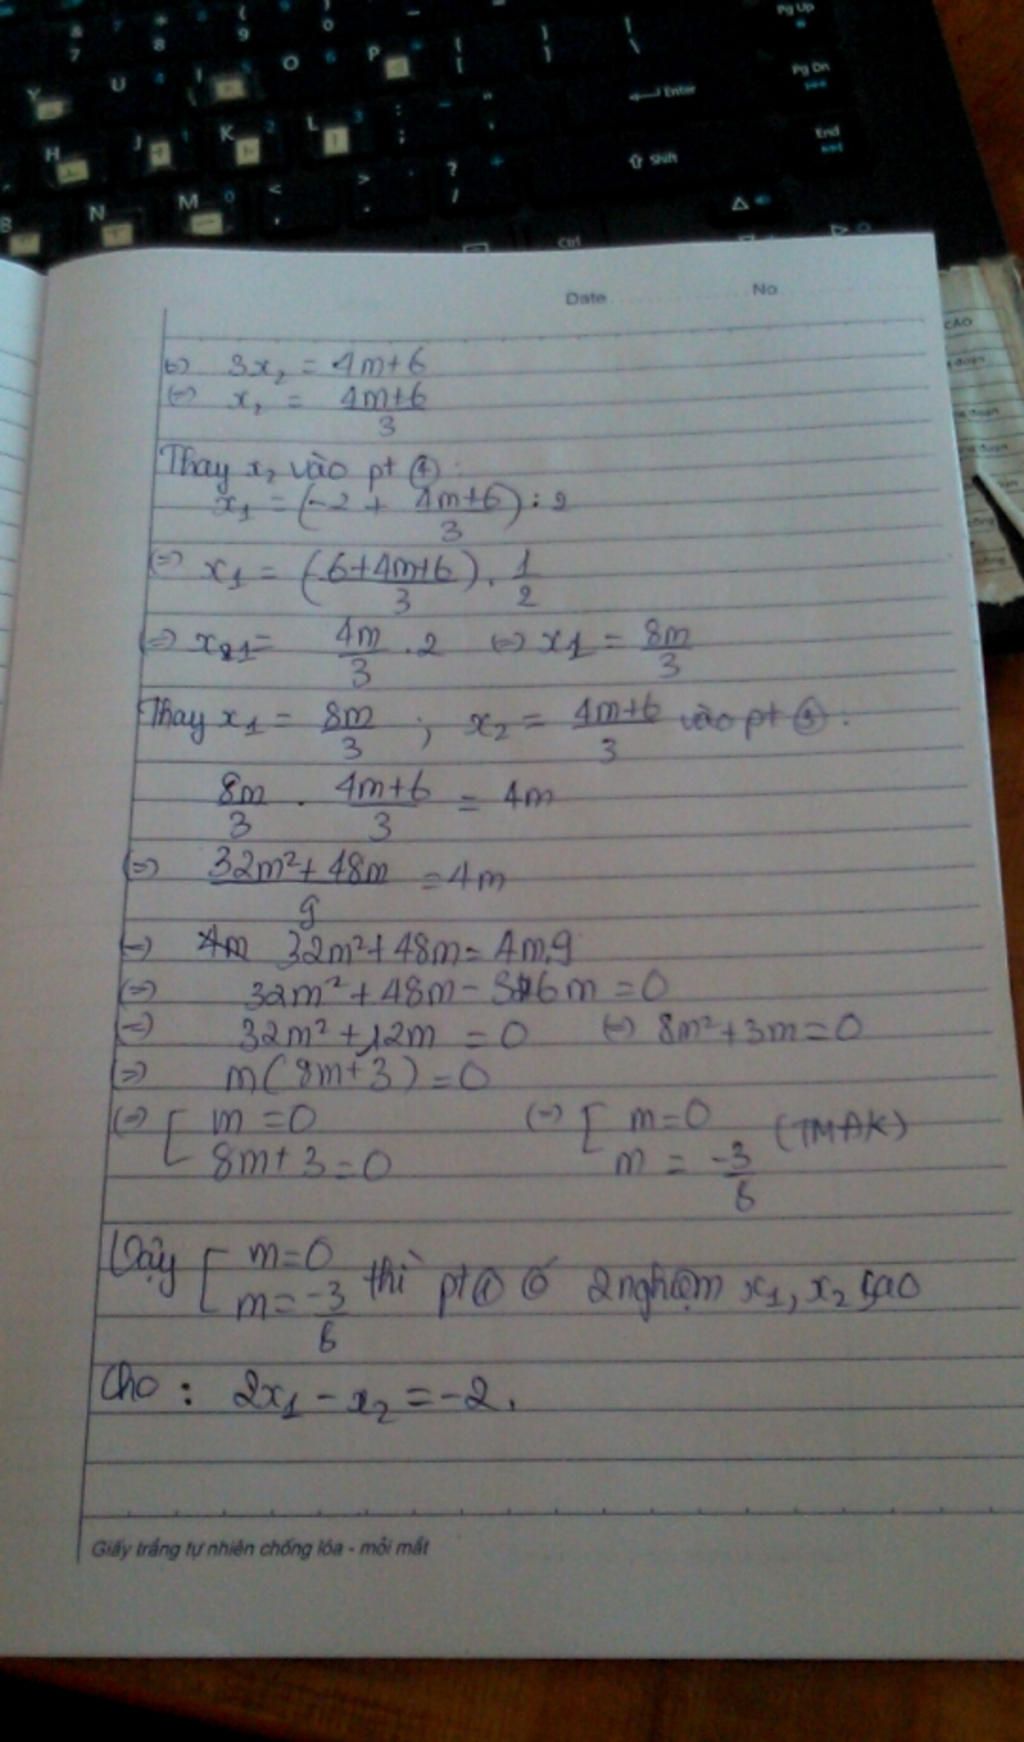 Y U I O P Pg Up
Pg Dn
H J K L Enter
End
B N M Shift
Ctrl
Date No
CÁO
⇔ 3x₂ = 4m+6
⇔ x₂ = 4m+6/3
Thay x₂ vào pt ④:
x₁ = (-2 + 4m+6/3) : 2
⇔ x₁ = (-6+4m+6/3) . 1/2
⇔ x₁ = 4m/3 . 2 ⇔ x₁ = 8m/3
Thay x₁ = 8m/3 ; x₂ = 4m+6/3 vào pt ③:
8m/3 . 4m+6/3 = 4m
⇔ 32m²+48m/9 = 4m
⇔ 32m²+48m = 4m.9
⇔ 32m²+48m-36m = 0
⇔ 32m²+12m = 0 ⇔ 8m²+3m=0
⇔ m(8m+3)=0
⇔ [ m=0 ⇔ [ m=0 (TMĐK)
8m+3=0 m = -3/8
Vậy [ m=0
m=-3/8 thì pt ① có 2 nghiệm x₁, x₂ sao
cho : 2x₁ - x₂ = -2.
Giấy trắng tự nhiên chống lóa - mỏi mắt